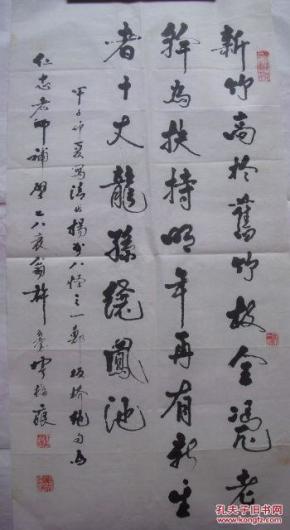 新竹高於舊竹枝全憑老
幹為扶持明年再有新生
者十丈龍孫繞鳳池
甲子仲夏寫清代揚州八怪之一鄭板橋絕句為
仁志老師補壁 八叟翁許
孔夫子旧书网